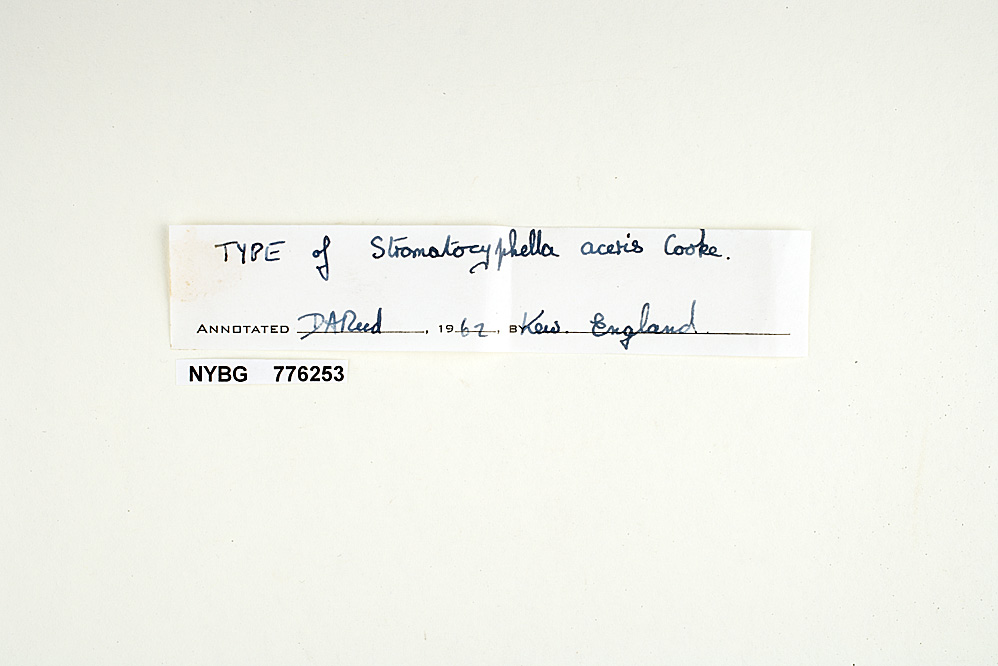 TYPE of Stromatocyphella aceris Cooke.
ANNOTATED DAReid, 1962, BY Kew. England.
NYBG 776253